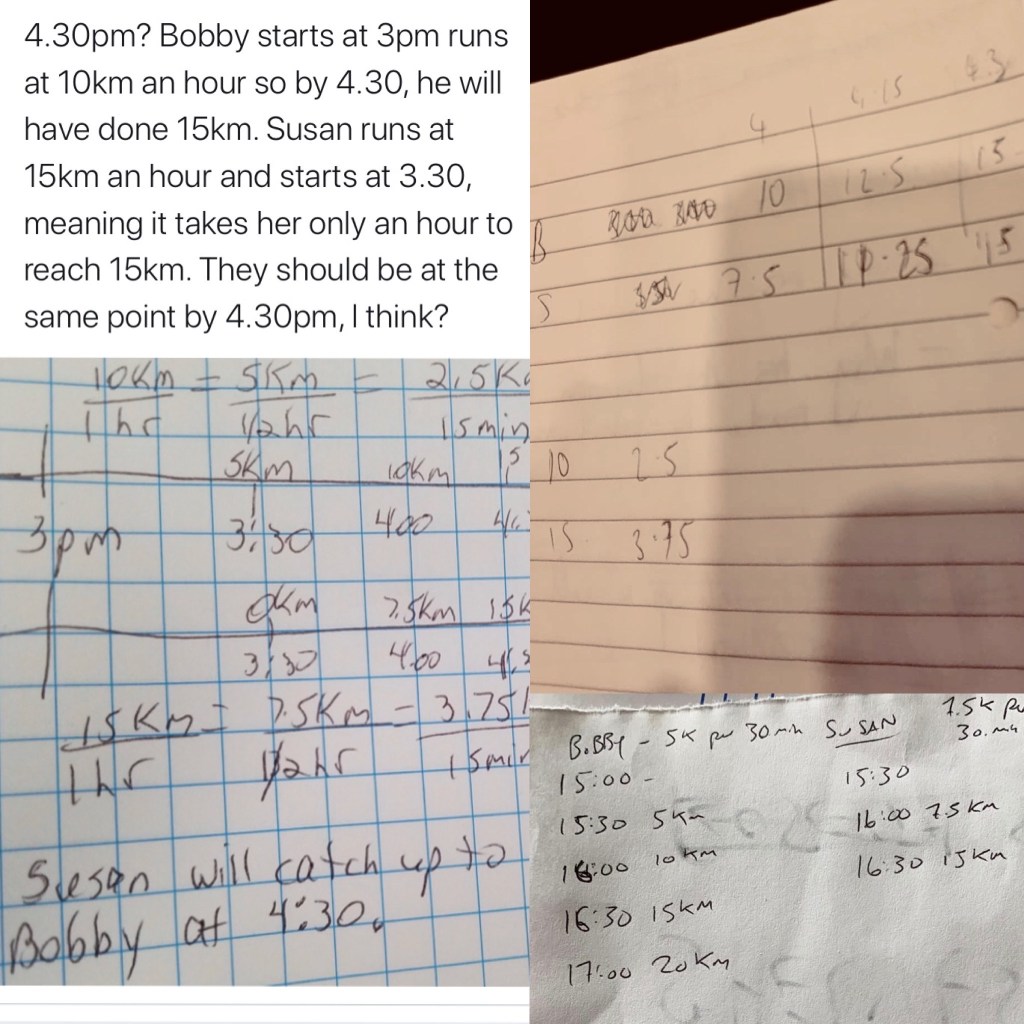 4.30pm? Bobby starts at 3pm runs
at 10km an hour so by 4.30, he will
have done 15km. Susan runs at
15km an hour and starts at 3.30,
meaning it takes her only an hour to
reach 15km. They should be at the
same point by 4.30pm, I think?
10Km = 5Km = 2,5K
1hr 1/2hr 15min
5Km 10Km 15
3pm 3:30 400
0Km 7.5Km 15K
3:30 400
15Km = 7.5Km = 3.75
1hr 1/2hr 15min
Susan will catch up to
Bobby at 4:30.
4 4.15 4.3
B 10 12.5 15
S 7.5 11.25 15
10 2.5
15 3.75
BOBBY - 5K per 30 min SUSAN 7.5K per
30.min
15:00 - 15:30
15:30 5Km 16:00 7.5Km
16:00 10Km 16:30 15Km
16:30 15KM
17:00 20Km